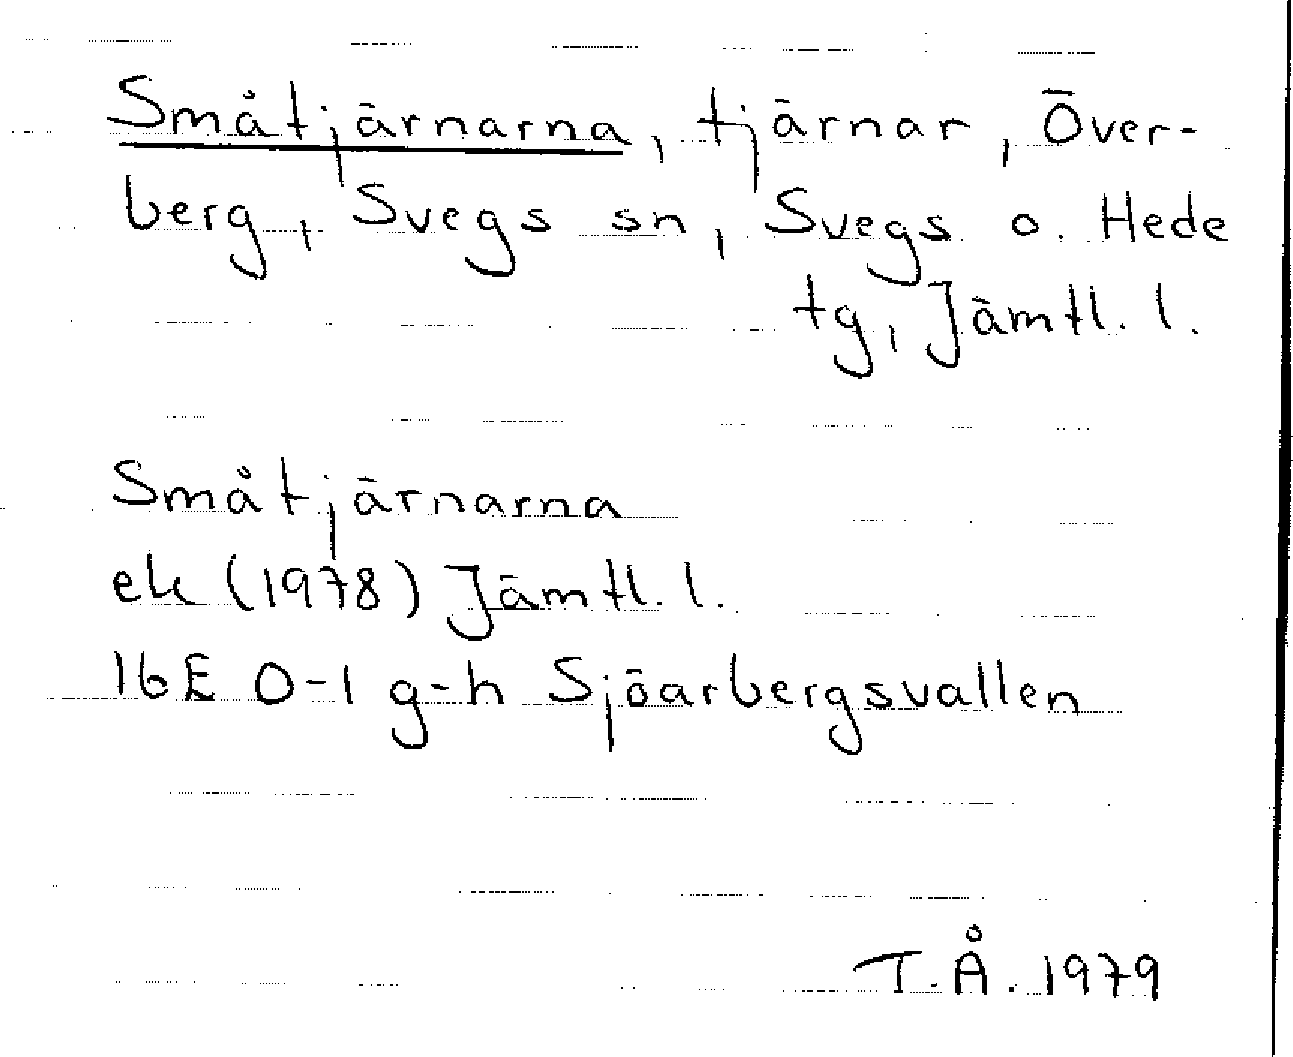 Småtjärnarna, tjärnar, Över-
berg, Svegs sn, Svegs o. Hede
tg, Jämtl. l.
Småtjärnarna
ek (1978) Jämtl. l.
16E 0-1 g-h Sjöarbergsvallen
T.Å. 1979